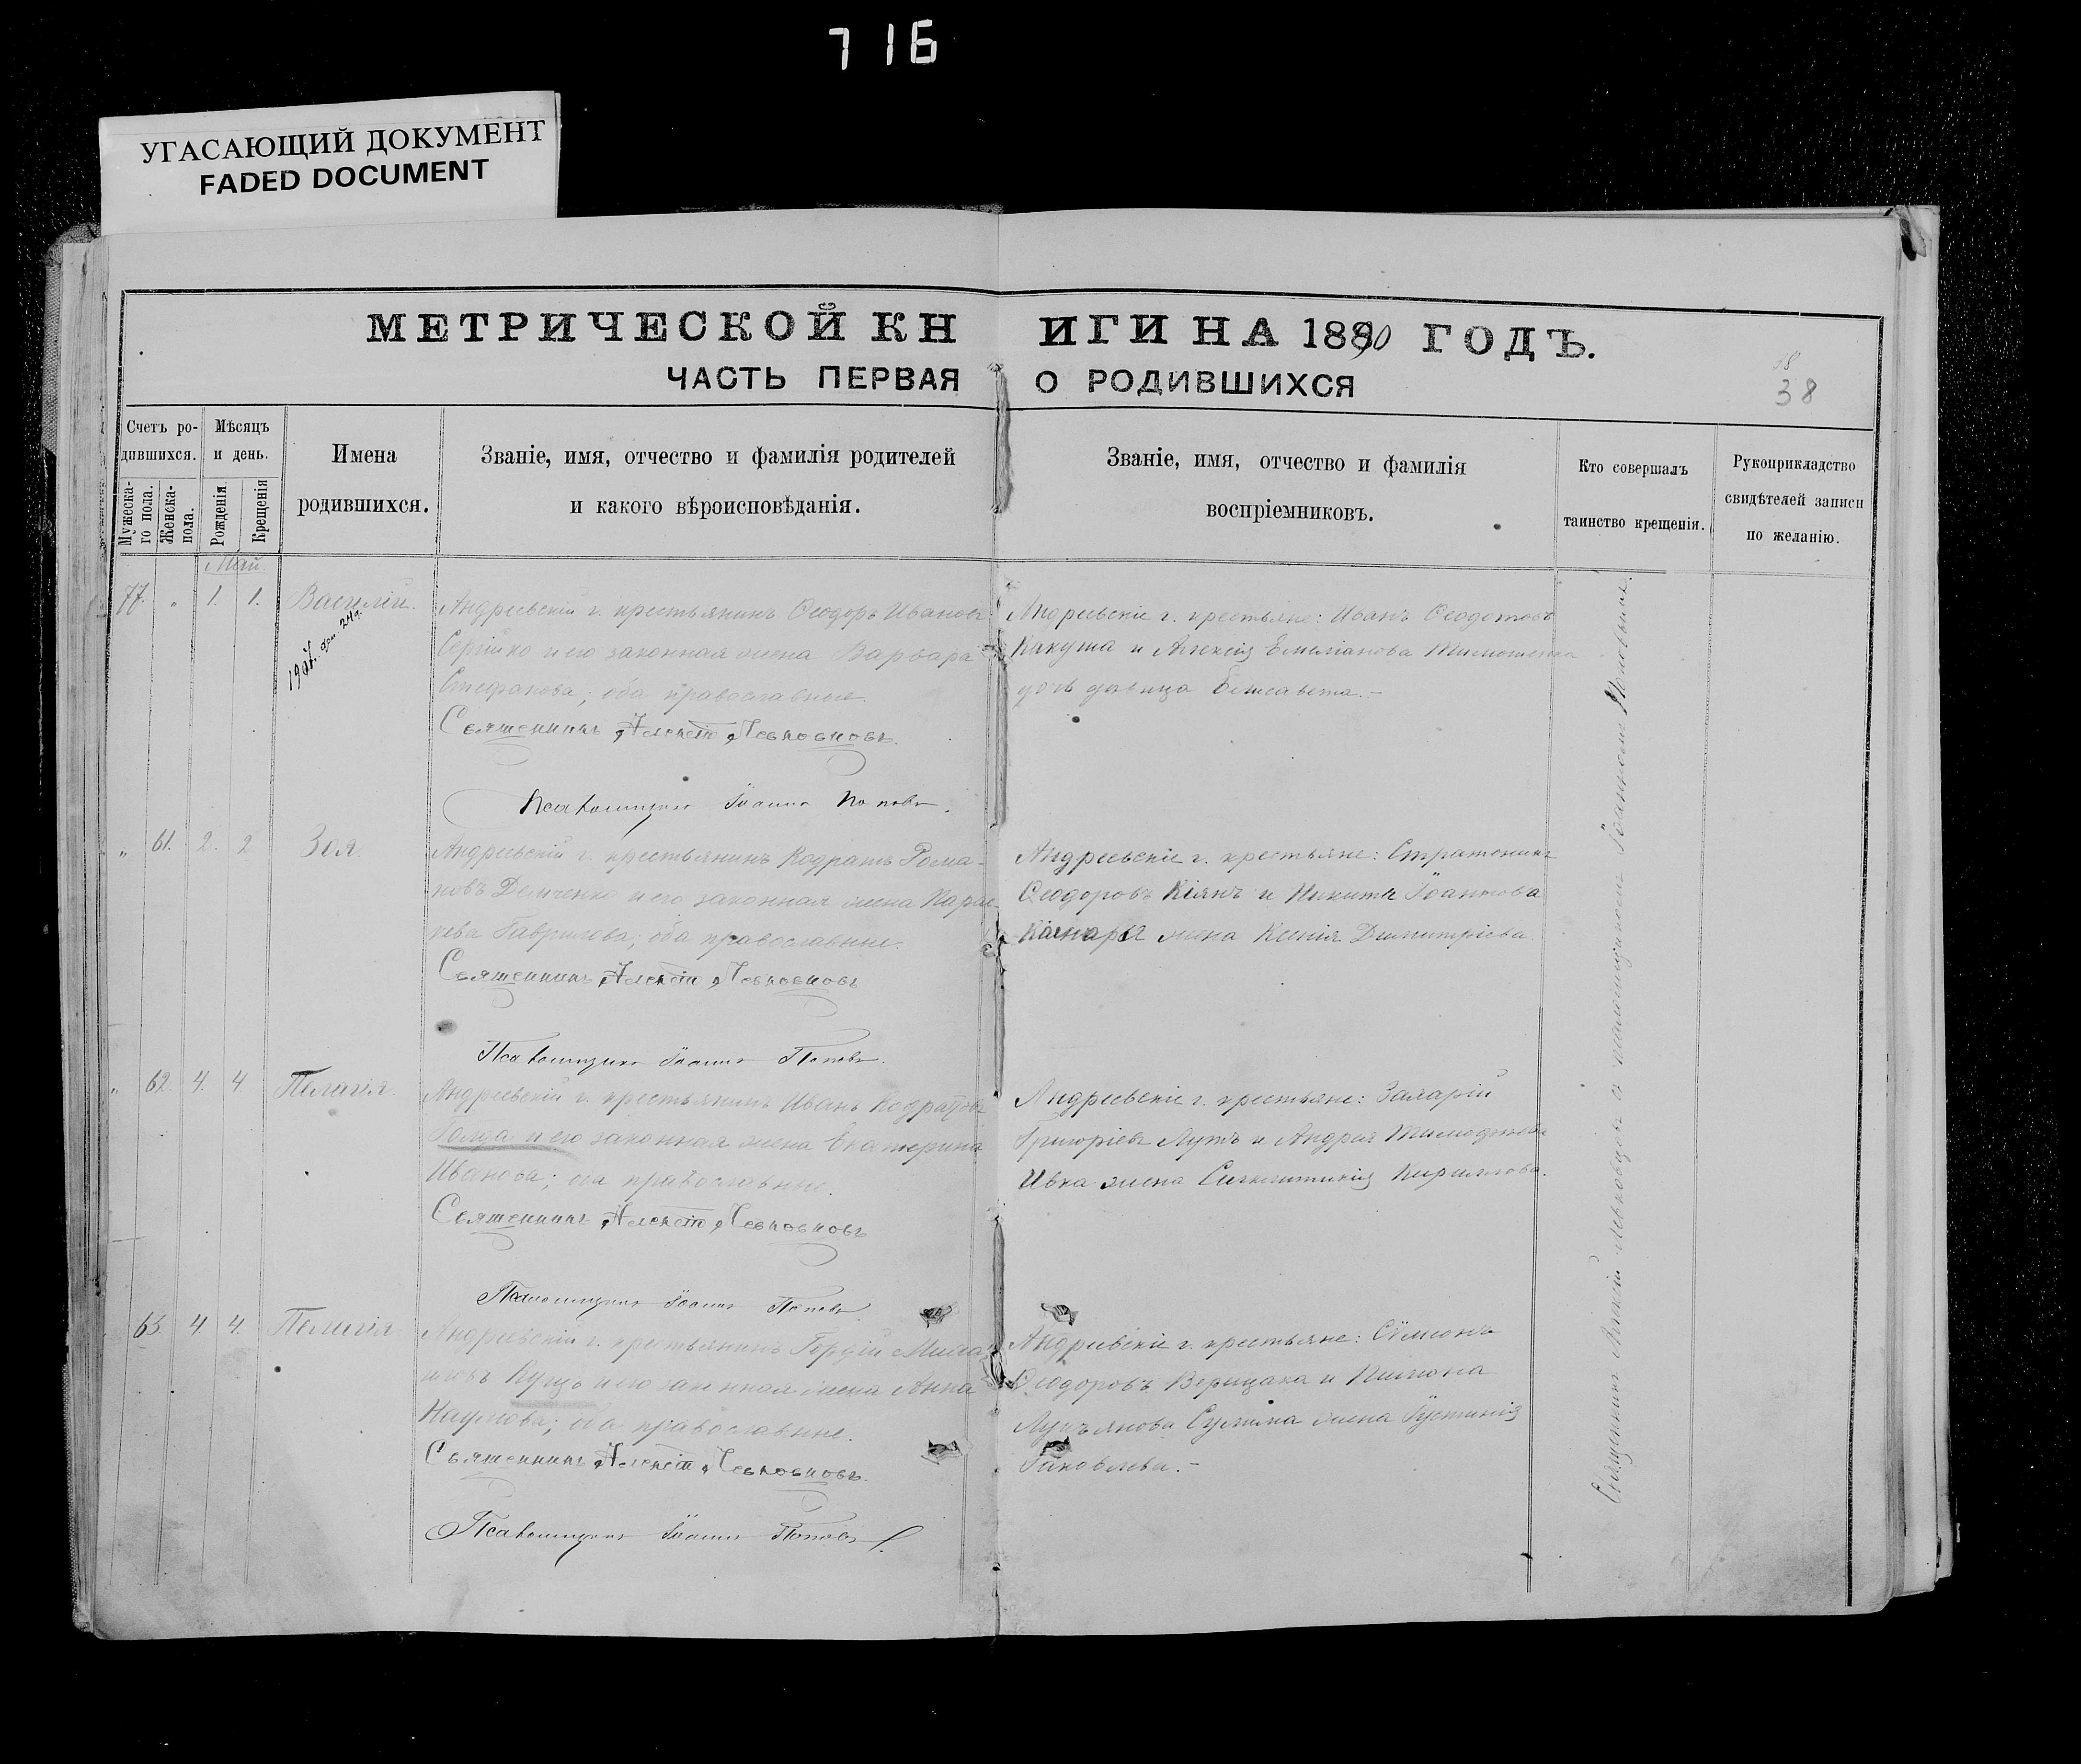 716
УГАСАЮЩИЙ ДОКУМЕНТ
FADED DOCUMENT
МЕТРИЧЕСКОЙ КНИГИ НА 1890 ГОДЪ.
ЧАСТЬ ПЕРВАЯ О РОДИВШИХСЯ
38
Счетъ родившихся.
Мужеска-го пола.
Женска- пола.
Мѣсяцъ и день.
Рожденія.
Крещенія
Имена
родившихся.
Званіе, имя, отчество и фамилія родителей
и какого вѣроисповѣданія.
Званіе, имя, отчество и фамилія
воспріемниковъ.
Кто совершалъ
таинство крещенія.
Рукоприкладство
свидѣтелей записи
по желанію.
Май
77. " 1. 1. Василій.
Андреевскій г. крестьянинъ Ѳеодоръ Ивановъ
Сергійко и его законная жена Варвара
Стефанова; оба православные.
Священникъ Алексій Левковцовъ.
Псаломщикъ Іоаннъ Поповъ.
Андреевскіе г. крестьяне: Иванъ Ѳеодотовъ
Какуша и Алексія Емиліанова Тимошенка
дочь дѣвица Елисавета.-
" 61. 2. 2 Зоя.
Андреевскій г. крестьянинъ Кодратъ Рома-
новъ Демченко и его законная жена Параске-
кева Гаврилова; оба православные.
Священникъ Алексій Левковцовъ
Псаломщикъ Іоаннъ Поповъ.
Андреевскіе г. крестьяне: Стратоникъ
Ѳеодоровъ Кіянъ и Никиты Іоаннова
жена Ксенія Димитріева.
" 62. 4. 4. Пелагія.
Андреевскій г. крестьянинъ Иванъ Кодратовъ
и его законная жена Екатерина
Иванова; оба православные.
Священникъ Алексій Левковцовъ
Псаломщикъ Іоаннъ Поповъ.
Андреевскіе г. крестьяне:
Григоріевъ и Андрея
Ивка жена Синклитикія Кириллова.
63. 4 4. Пелагія
Андреевскій г. крестьянинъ Гордій
Куцъ и его законная жена Анна
Наумова; оба православные.
Священникъ Алексій Левковцовъ.
Псаломщикъ Іоаннъ Поповъ.
Андреевскіе г. крестьяне: Сѵмеонъ
Ѳеодоровъ Верицака и Пимона
Лукьянова Сулима жена Іустинія
Яковлева.-
Священникъ Алексій Левковцовъ съ псаломщикомъ Іоанномъ Поповымъ.